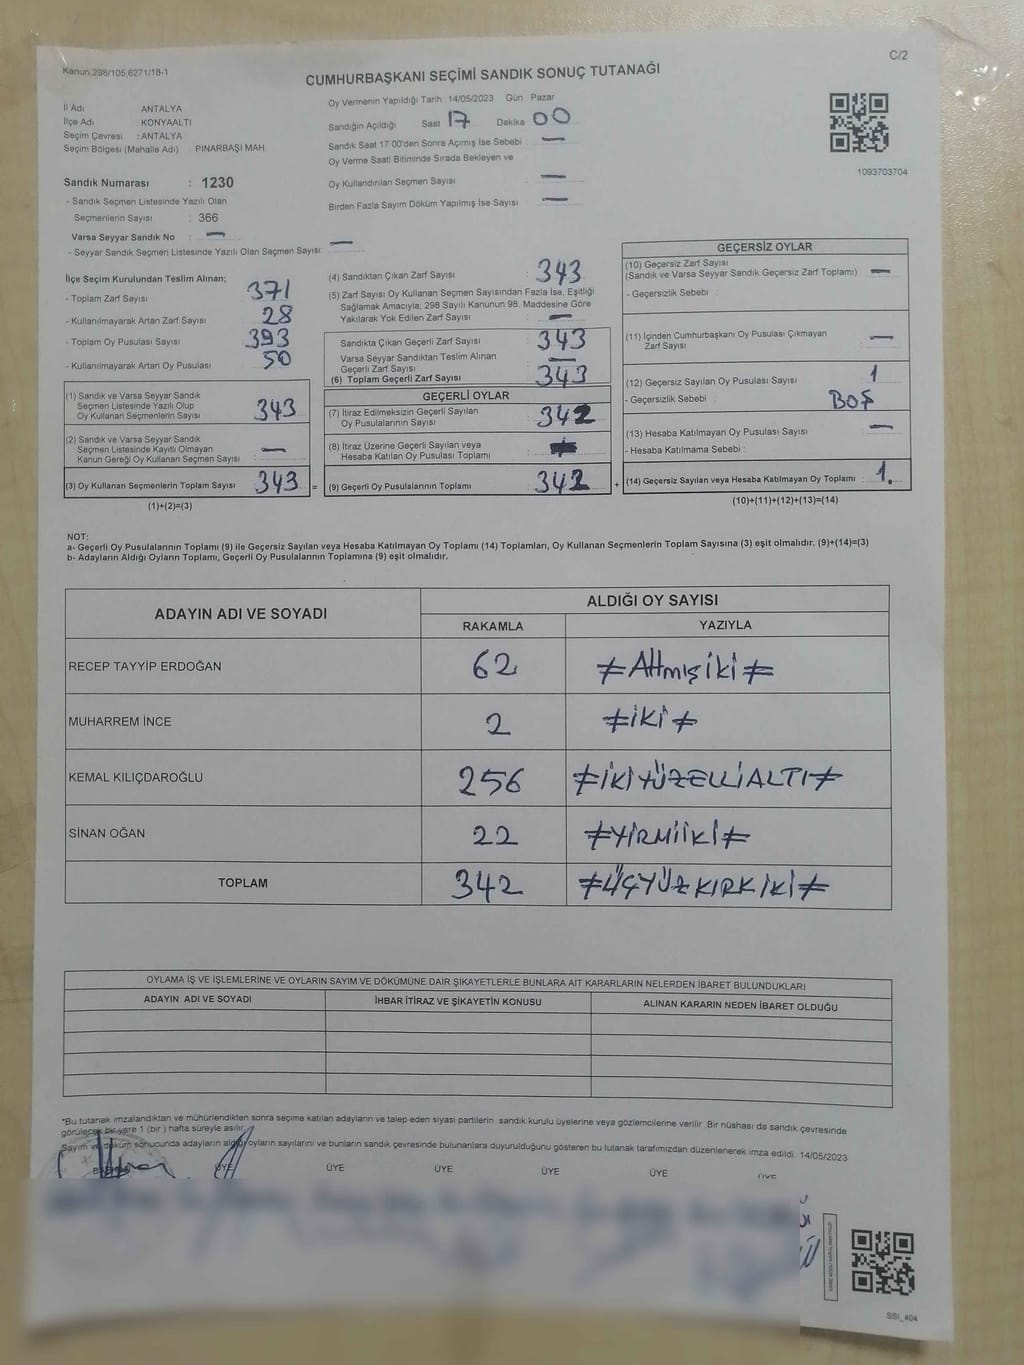 Kanun,298/105,6271/18-1
C/2
CUMHURBAŞKANI SEÇİMİ SANDIK SONUÇ TUTANAĞI
İl Adı ANTALYA
İlçe Adı : KONYAALTI
Seçim Çevresi : ANTALYA
Seçim Bölgesi (Mahalle Adı) PINARBAŞI MAH
Sandık Numarası : 1230
- Sandık Seçmen Listesinde Yazılı Olan
Seçmenlerin Sayısı : 366
Varsa Seyyar Sandık No : —
- Seyyar Sandık Seçmen Listesinde Yazılı Olan Seçmen Sayısı: —
Oy Vermenin Yapıldığı Tarih 14/05/2023 Gün Pazar
Sandığın Açıldığı Saat 17 Dakika 00
Sandık Saat 17 00'den Sonra Açmış İse Sebebi : —
Oy Verme Saati Bitiminde Sırada Bekleyen ve
Oy Kullandırılan Seçmen Sayısı : —
Birden Fazla Sayım Döküm Yapılmış İse Sayısı : —
1093703704
İlçe Seçim Kurulundan Teslim Alınan;
- Toplam Zarf Sayısı 371
- Kullanılmayarak Artan Zarf Sayısı : 28
- Toplam Oy Pusulası Sayısı : 393
- Kullanılmayarak Artan Oy Pusulası : 50
(1) Sandık ve Varsa Seyyar Sandık
Seçmen Listesinde Yazılı Olup
Oy Kullanan Seçmenlerin Sayısı : 343
(2) Sandık ve Varsa Seyyar Sandık
Seçmen Listesinde Kayıtlı Olmayan
Kanun Gereği Oy Kullanan Seçmen Sayısı : —
(3) Oy Kullanan Seçmenlerin Toplam Sayısı : 343 =
(1)+(2)=(3)
(4) Sandıktan Çıkan Zarf Sayısı : 343
(5) Zarf Sayısı Oy Kullanan Seçmen Sayısından Fazla İse, Eşitliği
Sağlamak Amacıyla; 298 Sayılı Kanunun 98. Maddesine Göre
Yakılarak Yok Edilen Zarf Sayısı : —
Sandıkta Çıkan Geçerli Zarf Sayısı : 343
Varsa Seyyar Sandıktan Teslim Alınan
Geçerli Zarf Sayısı : —
(6) Toplam Geçerli Zarf Sayısı : 343
GEÇERLİ OYLAR
(7) İtiraz Edilmeksizin Geçerli Sayılan
Oy Pusulalarının Sayısı : 342
(8) İtiraz Üzerine Geçerli Sayılan veya
Hesaba Katılan Oy Pusulası Toplamı :
(9) Geçerli Oy Pusulalarının Toplamı : 342 +
GEÇERSİZ OYLAR
(10) Geçersiz Zarf Sayısı
(Sandık ve Varsa Seyyar Sandık Geçersiz Zarf Toplamı) : —
- Geçersizlik Sebebi :
(11) İçinden Cumhurbaşkanı Oy Pusulası Çıkmayan
Zarf Sayısı : —
(12) Geçersiz Sayılan Oy Pusulası Sayısı : 1
- Geçersizlik Sebebi : BOŞ
(13) Hesaba Katılmayan Oy Pusulası Sayısı : —
- Hesaba Katılmama Sebebi :
(14) Geçersiz Sayılan veya Hesaba Katılmayan Oy Toplamı : 1.
(10)+(11)+(12)+(13)=(14)
NOT:
a- Geçerli Oy Pusulalarının Toplamı (9) ile Geçersiz Sayılan veya Hesaba Katılmayan Oy Toplamı (14) Toplamları, Oy Kullanan Seçmenlerin Toplam Sayısına (3) eşit olmalıdır. (9)+(14)=(3)
b- Adayların Aldığı Oyların Toplamı, Geçerli Oy Pusulalarının Toplamına (9) eşit olmalıdır.
ADAYIN ADI VE SOYADI ALDIĞI OY SAYISI
RAKAMLA YAZIYLA
RECEP TAYYİP ERDOĞAN 62 ≠Altmışiki≠
MUHARREM İNCE 2 ≠İKİ≠
KEMAL KILIÇDAROĞLU 256 ≠İKİYÜZELLİALTI≠
SİNAN OĞAN 22 ≠YİRMİİKİ≠
TOPLAM 342 ≠ÜÇYÜZKIRKİKİ≠
OYLAMA İŞ VE İŞLEMLERİNE VE OYLARIN SAYIM VE DÖKÜMÜNE DAİR ŞİKAYETLERLE BUNLARA AİT KARARLARIN NELERDEN İBARET BULUNDUKLARI
ADAYIN ADI VE SOYADI İHBAR İTİRAZ VE ŞİKAYETİN KONUSU ALINAN KARARIN NEDEN İBARET OLDUĞU
*Bu tutanak imzalandıktan ve mühürlendikten sonra seçime katılan adayların ve talep eden siyasi partilerin sandık kurulu üyelerine veya gözlemcilerine verilir. Bir nüshası da sandık çevresinde
görülecek bir yere 1 (bir ) hafta süreyle asılır.
Sayım ve döküm sonucunda adayların aldığı oyların sayılarını ve bunların sandık çevresinde bulunanlara duyurulduğunu gösteren bu tutanak tarafımızdan düzenlenerek imza edildi. 14/05/2023
BAŞKAN ÜYE ÜYE ÜYE ÜYE ÜYE ÜYE
SSI_404